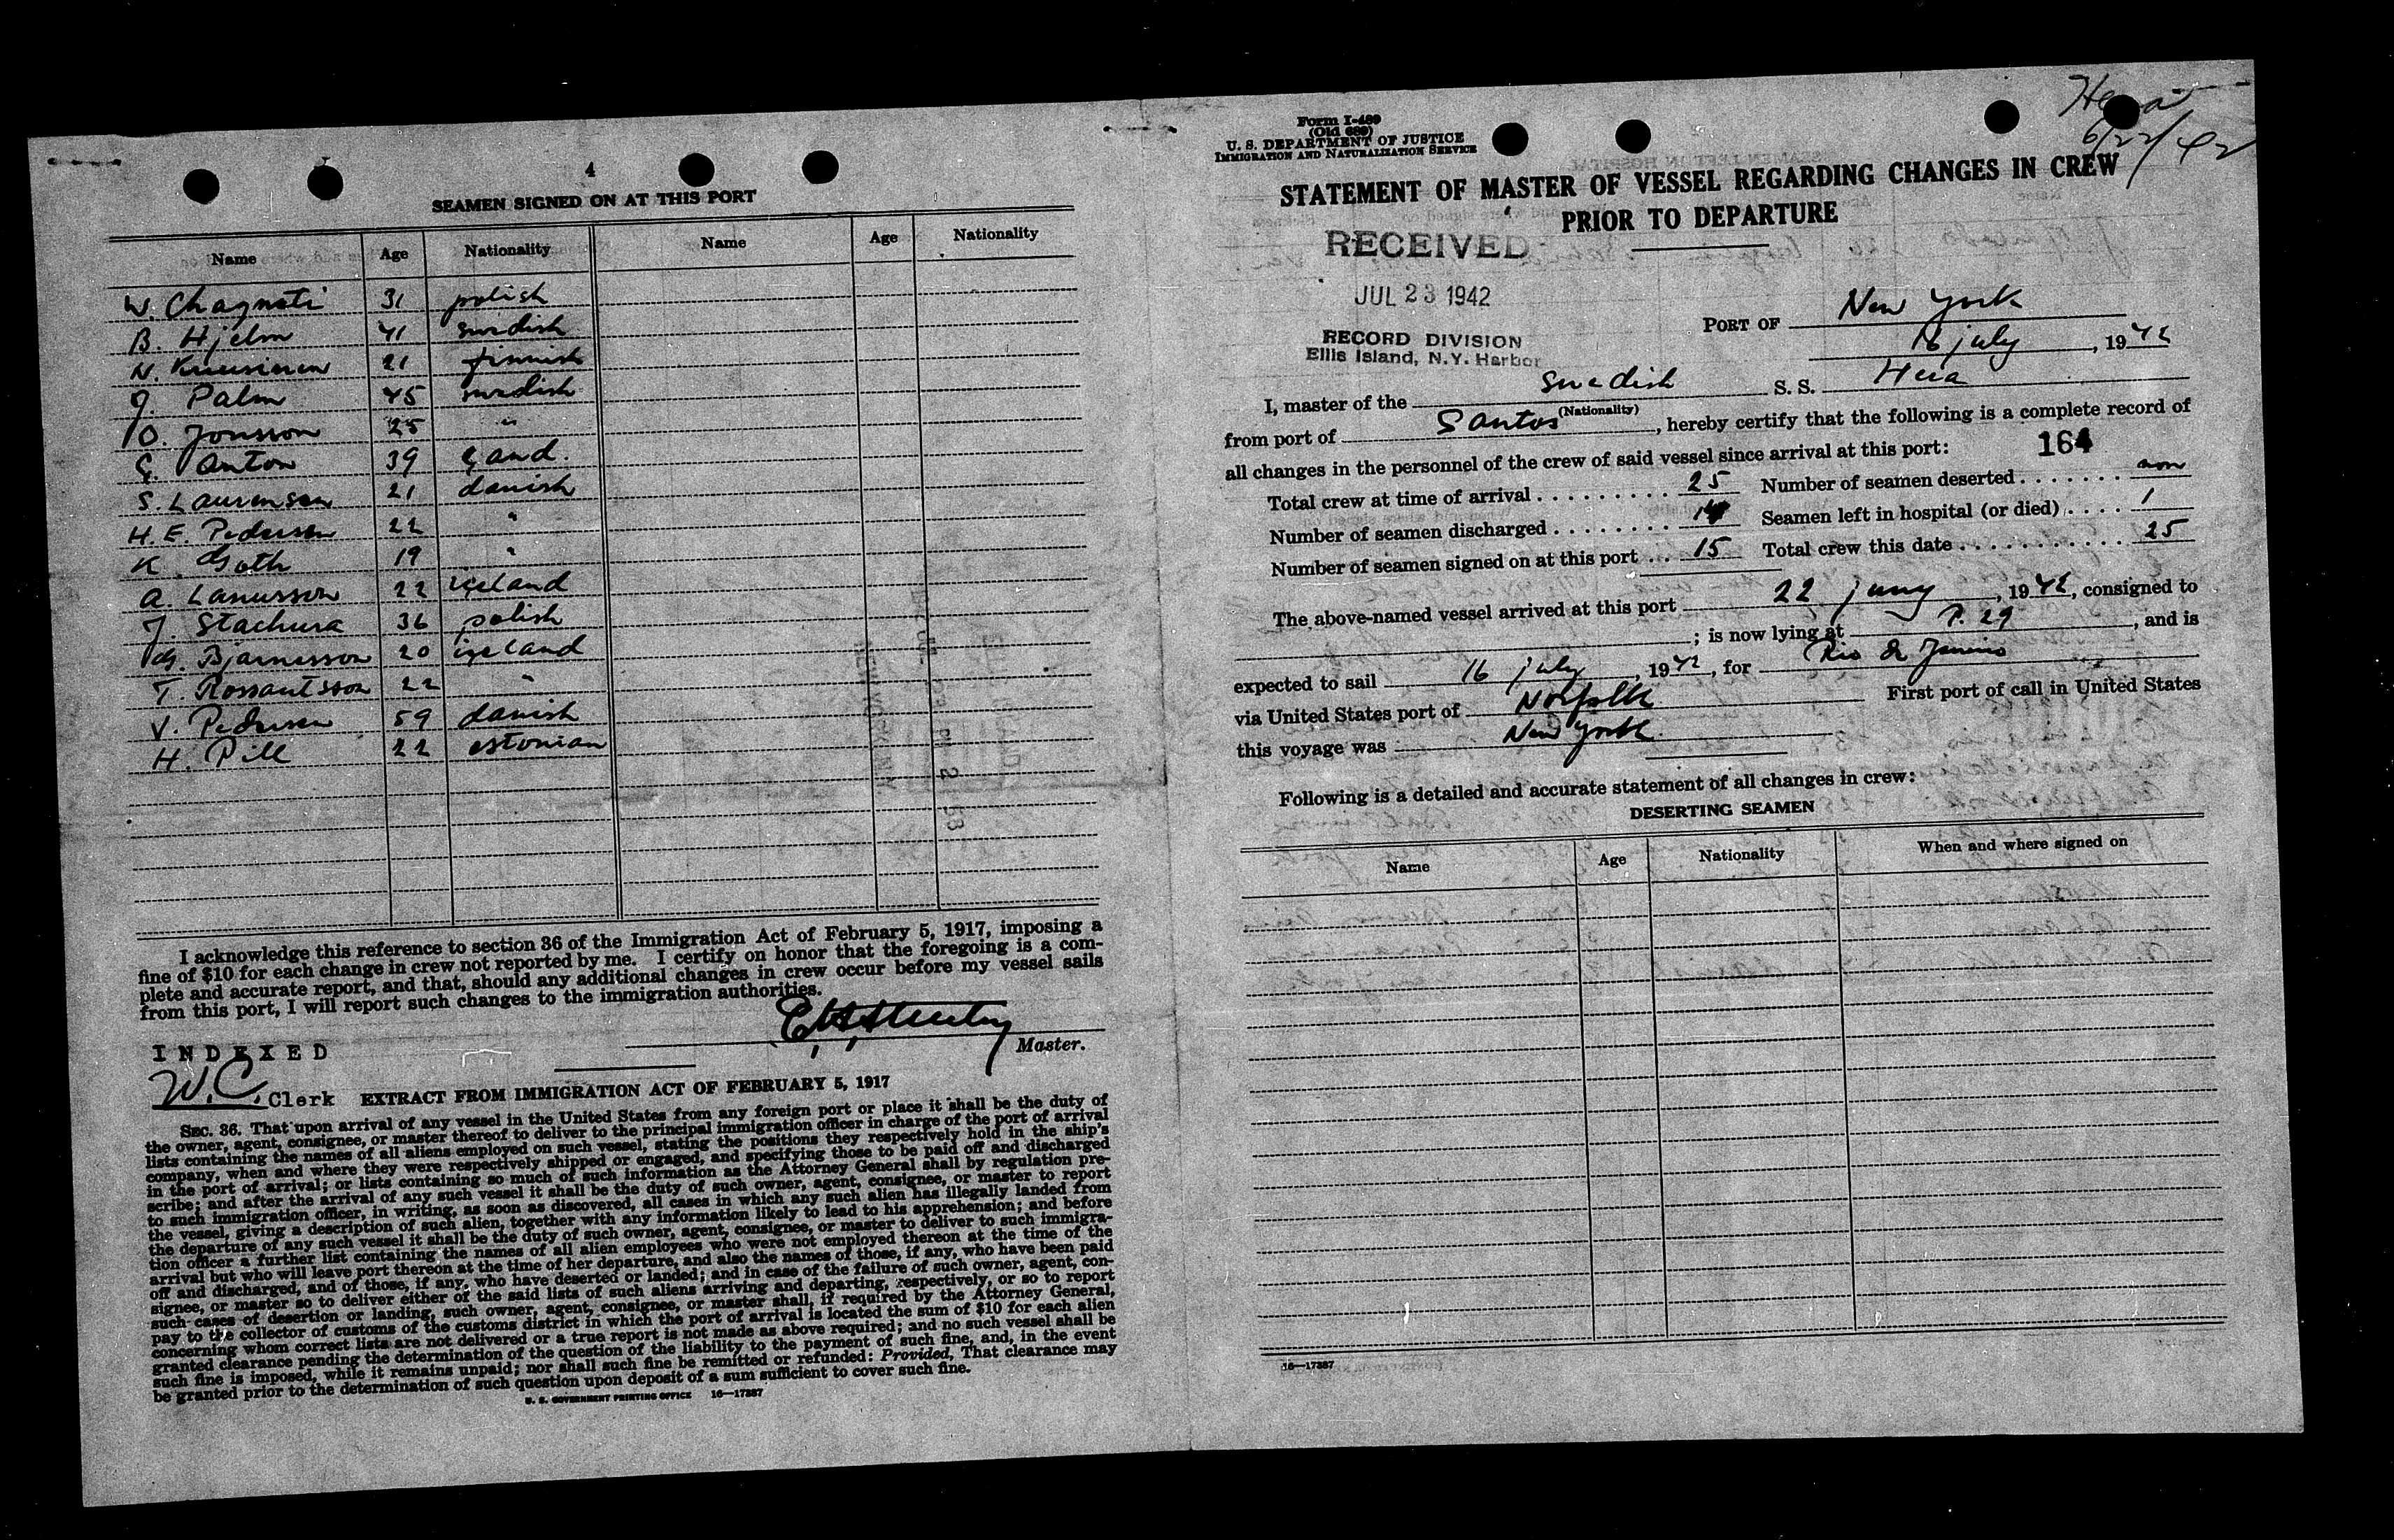 4
SEAMEN SIGNED ON AT THIS PORT
Name Age Nationality Name Age Nationality
W. 31 polish
B. Hjelm 41 swedish
N. 21 finnish
J. Palm 45 swedish
O. Jonsson 25 "
Anton 39
S. Laurensen 21 danish
H. E. Pedersen 22 "
K. Goth 19 "
A. 22 iceland
J. Stachura 36 polish
G. Bjarnesson 20 iceland
T. 22 "
V. Pedersen 59 danish
H. Pill 22 estonian
I acknowledge this reference to section 36 of the Immigration Act of February 5, 1917, imposing a
fine of $10 for each change in crew not reported by me. I certify on honor that the foregoing is a com-
plete and accurate report, and that, should any additional changes in crew occur before my vessel sails
from this port, I will report such changes to the immigration authorities.
Master.
INDEXED
W.C. Clerk EXTRACT FROM IMMIGRATION ACT OF FEBRUARY 5, 1917
SEC. 36. That upon arrival of any vessel in the United States from any foreign port or place it shall be the duty of
the owner, agent, consignee, or master thereof to deliver to the principal immigration officer in charge of the port of arrival
lists containing the names of all aliens employed on such vessel, stating the positions they respectively hold in the ship's
company, when and where they were respectively shipped or engaged, and specifying those to be paid off and discharged
in the port of arrival; or lists containing so much of such information as the Attorney General shall by regulation pre-
scribe; and after the arrival of any such vessel it shall be the duty of such owner, agent, consignee, or master to report
to such immigration officer, in writing, as soon as discovered, all cases in which any such alien has illegally landed from
the vessel, giving a description of such alien, together with any information likely to lead to his apprehension; and before
the departure of any such vessel it shall be the duty of such owner, agent, consignee, or master to deliver to such immigra-
tion officer a further list containing the names of all alien employees who were not employed thereon at the time of the
arrival but who will leave port thereon at the time of her departure, and also the names of those, if any, who have been paid
off and discharged, and of those, if any, who have deserted or landed; and in case of the failure of such owner, agent, con-
signee, or master so to deliver either of the said lists of such aliens arriving and departing, respectively, or so to report
such cases of desertion or landing, such owner, agent, consignee, or master shall, if required by the Attorney General,
pay to the collector of customs of the customs district in which the port of arrival is located the sum of $10 for each alien
concerning whom correct lists are not delivered or a true report is not made as above required; and no such vessel shall be
granted clearance pending the determination of the question of the liability to the payment of such fine, and, in the event
such fine is imposed, while it remains unpaid; nor shall such fine be remitted or refunded: Provided, That clearance may
be granted prior to the determination of such question upon deposit of a sum sufficient to cover such fine.
U. S. GOVERNMENT PRINTING OFFICE 16—17387
6/22/42
Form I-489
(Old 689)
U. S. DEPARTMENT OF JUSTICE
IMMIGRATION AND NATURALIZATION SERVICE
STATEMENT OF MASTER OF VESSEL REGARDING CHANGES IN CREW
PRIOR TO DEPARTURE
RECEIVED
JUL 23 1942
RECORD DIVISION
Ellis Island, N.Y. Harbor
PORT OF New York
16 july, 1942
I, master of the swedish S. S. Hera
(Nationality)
from port of Santos, hereby certify that the following is a complete record of
all changes in the personnel of the crew of said vessel since arrival at this port: 164
Total crew at time of arrival 25 Number of seamen deserted non
Number of seamen discharged 14 Seamen left in hospital (or died) 1
Number of seamen signed on at this port 15 Total crew this date 25
The above-named vessel arrived at this port 22 juny, 1942, consigned to
; is now lying at P. 29, and is
expected to sail 16 july, 1942, for Rio de Janeiro
via United States port of Norfolk First port of call in United States
this voyage was New York
Following is a detailed and accurate statement of all changes in crew:
DESERTING SEAMEN
Name Age Nationality When and where signed on
16—17387